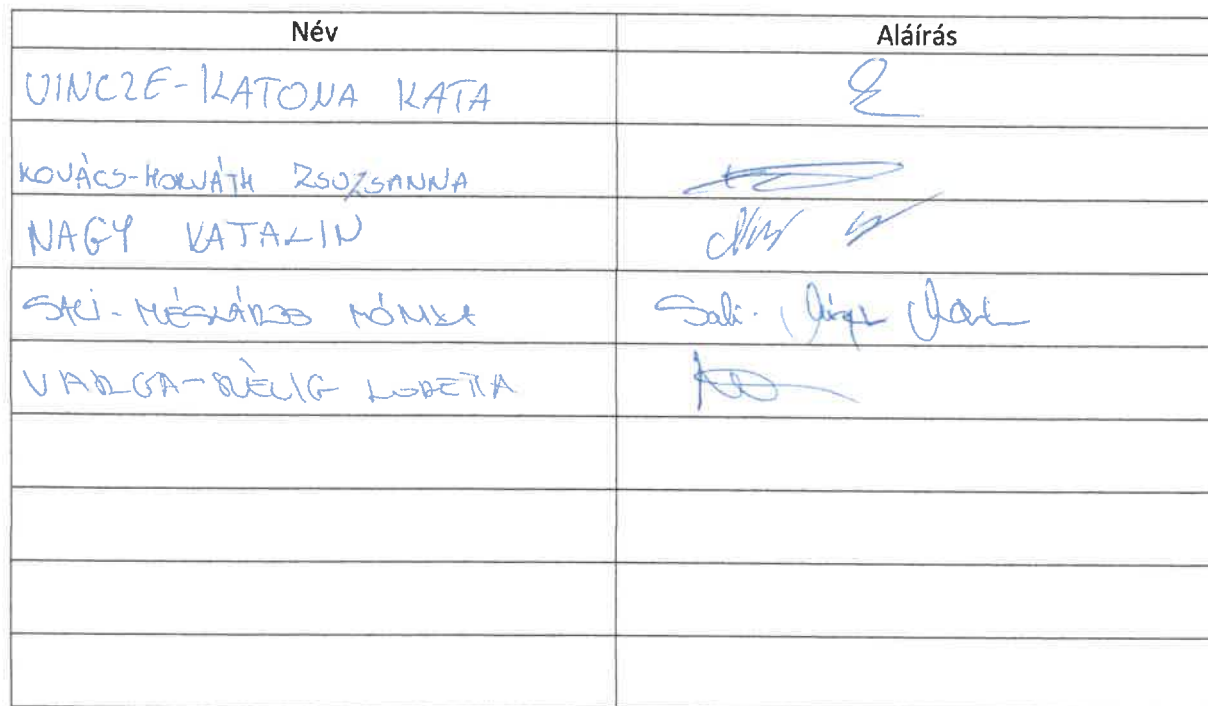 Név Aláírás
VINCZE-KATONA KATA
KOVÁCS-HORVÁTH ZSUZSANNA
NAGY KATALIN
SALI-MÉSZÁROS MÓNIKA Sali-
VARGA- LORETTA